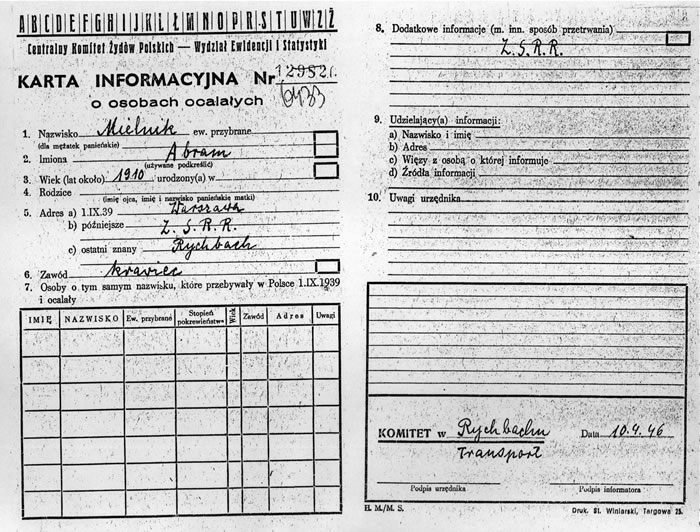 A B C D E F G H I J K L Ł M N O P R S T U W Z Ż
Centralny Komitet Żydów Polskich — Wydział Ewidencji i Statystyki
KARTA INFORMACYJNA Nr
o osobach ocalałych
1. Nazwisko Mielnik ew. przybrane
(dla mężatek panieńskie)
2. Imiona Abram
(używane podkreślić)
3. Wiek (lat około) 1910 urodzony(a) w
4. Rodzice
(imię ojca, imię i nazwisko panieńskie matki)
5. Adres a) 1.IX.39 Warszawa
b) późniejsze Z. S. R. R.
c) ostatni znany Rychbach
6. Zawód krawiec
7. Osoby o tym samym nazwisku, które przebywały w Polsce 1.IX.1939
i ocalały
IMIĘ NAZWISKO Ew. przybrane Stopień pokrewieństwa Wiek Zawód Adres Uwagi
8. Dodatkowe informacje (m. inn. sposób przetrwania)
Z. S. R. R.
9. Udzielający(a) informacji:
a) Nazwisko i imię
b) Adres
c) Więzy z osobą o której informuje
d) Źródła informacji
10. Uwagi urzędnika
KOMITET w Rychbachu Data 10.4.46
Transport
Podpis urzędnika Podpis informatora
H. M./M. S. Druk. St. Winiarski, Targowa 25.